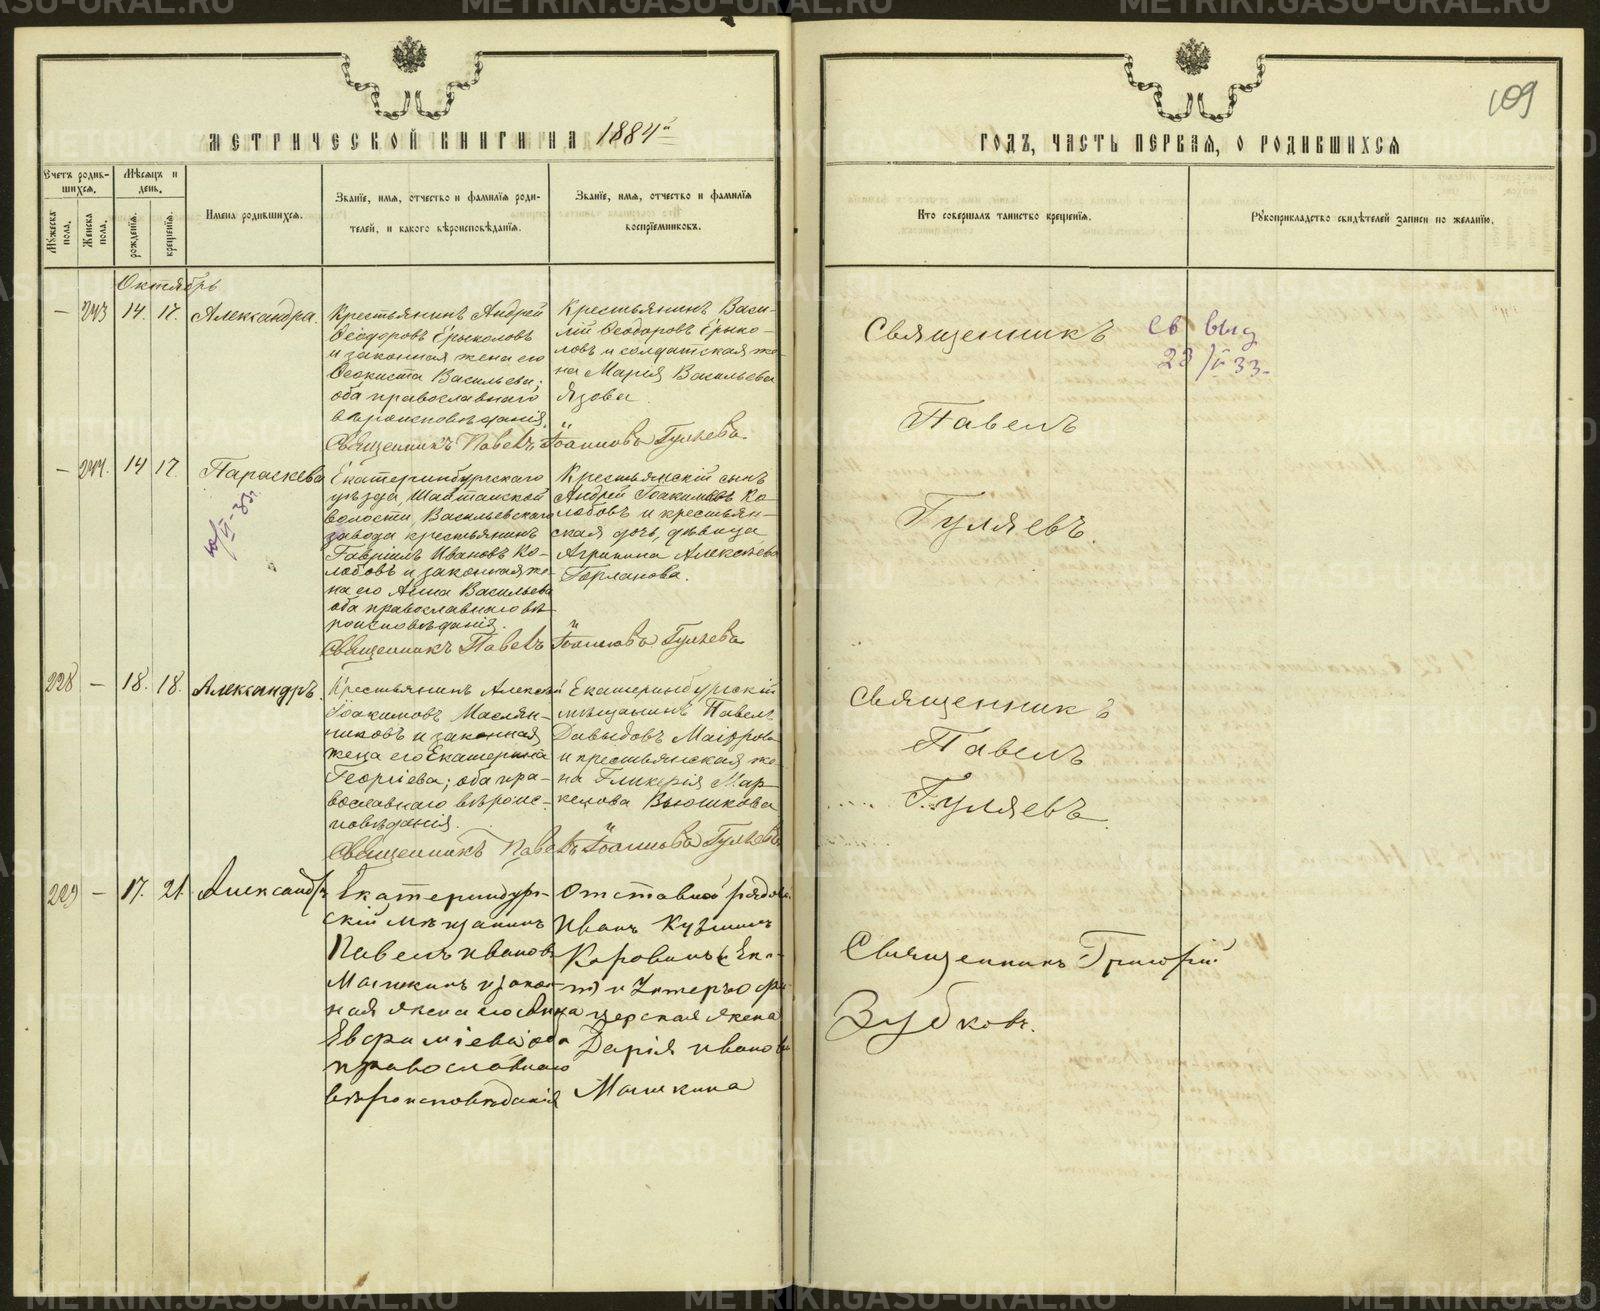 109
МЕТРИЧЕСКОЙ КНИГИ НА 1884й
ГОДЪ, ЧАСТЬ ПЕРВАЯ, О РОДИВШИХСЯ
Счетъ родив-
шихся.
Мужеска
пола.
Женска
пола.
Мѣсяцъ и
день.
рожденія.
крещенія.
Имена родившихся.
Званіе, имя, отчество и фамилія роди-
телей, и какого вѣроисповѣданія.
Званіе, имя, отчество и фамилія
воспріемниковъ.
Кто совершалъ таинство крещенія.
Рукоприкладство свидѣтелей записи по желанію.
Октябрь
— 243 14. 17. Александра.
Крестьянинъ Андрей
Ѳеодоровъ Ерыколовъ
и законная жена его
Ѳеоктиста Васильева;
оба православнаго
вѣроисповѣданія.
Крестьянинъ Васи-
лій Ѳеодоровъ Ерыко-
ловъ и солдатская же-
на Марія Васильева
Язова.
Священникъ Павелъ Іоанновъ Гуляевъ
Священникъ
Павелъ
Гуляевъ.
св выд
23/V 33.
— 244. 14 17. Параскева
10/VI-33г.
Екатеринбургскаго
уѣзда, Шайтанской
волости, Васильевскаго
завода крестьянинъ
Гавріилъ Ивановъ Ко-
лобовъ и законная же-
на его Анна Васильева
оба православнаго вѣ-
роисповѣданія.
Крестьянскій сынъ
Андрей Іоакимовъ Ко-
лобовъ и крестьян-
ская дочь, дѣвица
Агрипина Алексѣева
Горланова.
Священникъ Павелъ Іоанновъ Гуляевъ
228 — 18. 18. Александръ.
Крестьянинъ Алексѣй
Іоакимовъ Маслян-
никовъ и законная
жена его Екатерина
Георгіева; оба пра-
вославнаго вѣроис-
повѣданія.
Екатеринбургскій
мѣщанинъ Павелъ
Давыдовъ Маіоровъ
и крестьянская же-
на Гликерія Мар-
келова Вьюшкова
Священникъ Павелъ Іоанновъ Гуляевъ
Священникъ
Павелъ
Гуляевъ.
229 — 17. 21. Александръ
Екатеринбург-
скій мѣщанинъ
Павелъ Ивановъ
Машкинъ и закон-
ная жена его Анна
Евфиміева оба
православнаго
вѣроисповѣданія
Отставной рядовой
Иванъ Кузминъ
Коровинъ
и Унтеръ офи-
церская жена
Дарія Иванова
Машкина
Священникъ Григорій
Зубковъ.
METRIKI.GASO-URAL.RU